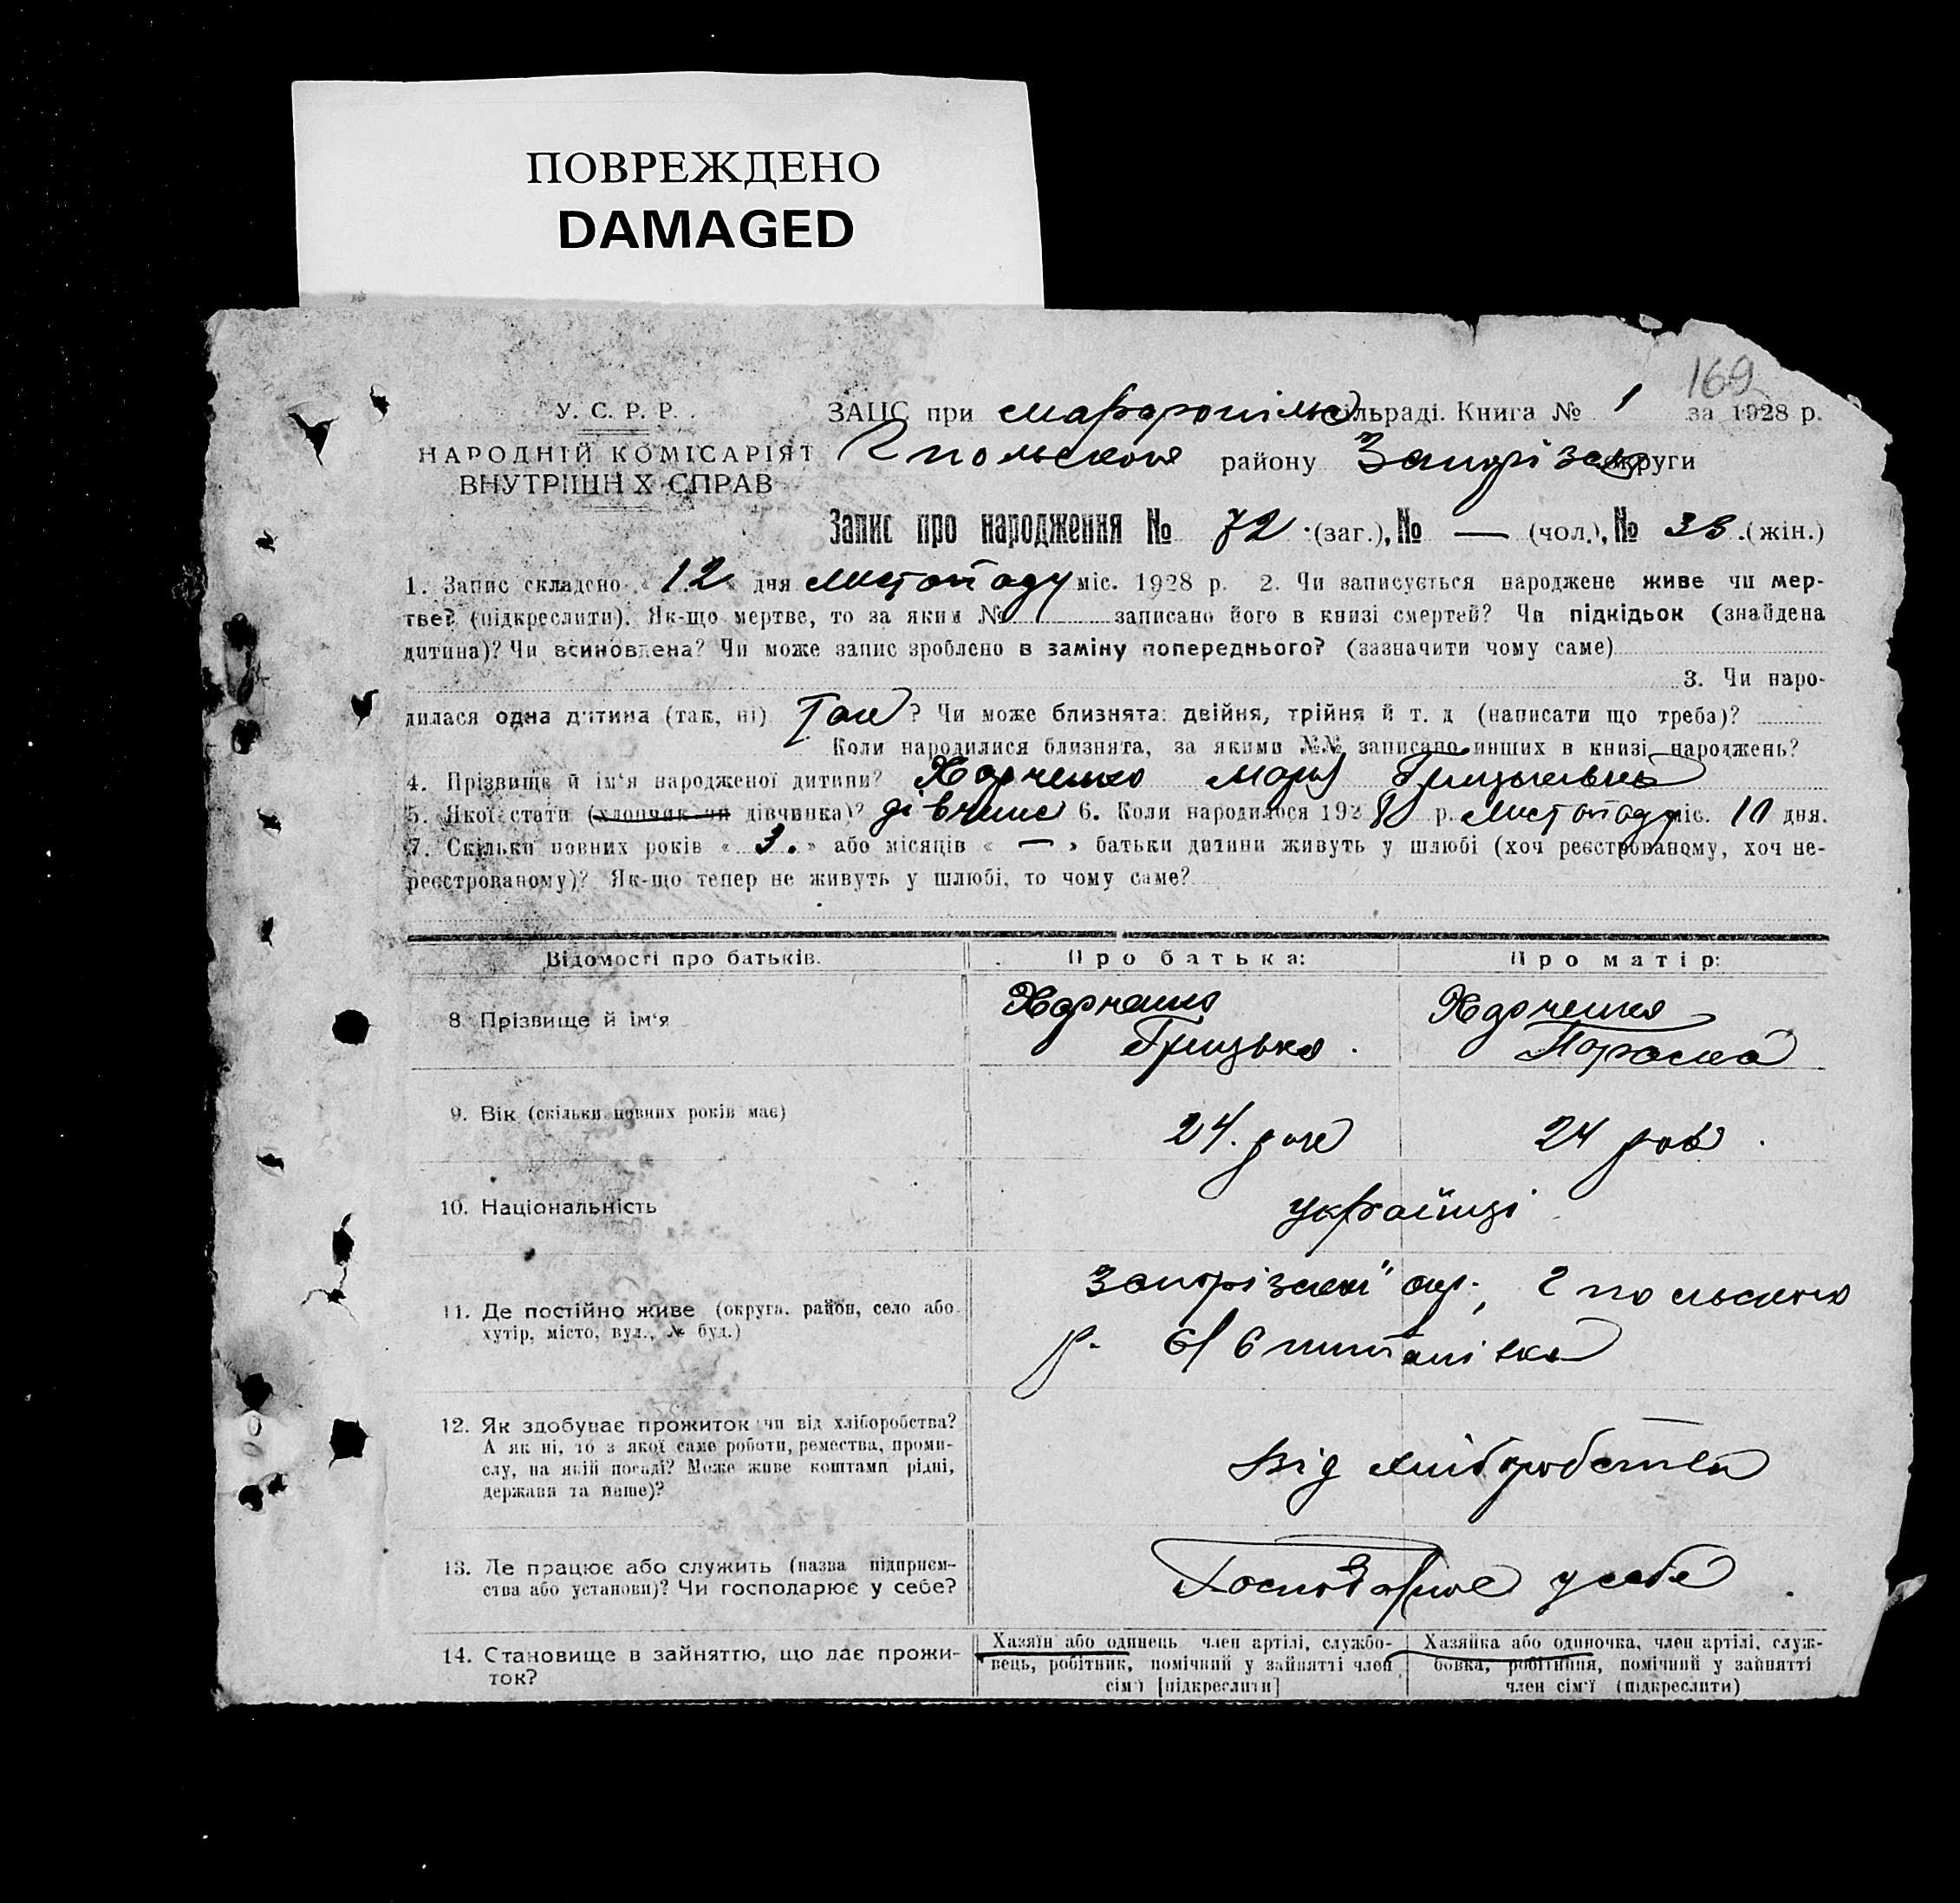 ПОВРЕЖДЕНО
DAMAGED
169
У. С. Р. Р.
НАРОДНІЙ КОМІСАРІЯТ
ВНУТРІШНІХ СПРАВ
ЗАЦС при сільраді. Книга № 1 за 1928 р.
району Запорізьк округи
Запис про народження № 72 (заг.), № — (чол.), № 38 (жін.)
1. Запис складено „12“ дня листопаду міс. 1928 р. 2. Чи записується народжене живе чи мер-
тве? (підкреслити). Як-що мертве, то за яким № записано його в книзі смертей? Чи підкідьок (знайдена
дитина)? Чи всиновлена? Чи може запис зроблено в заміну попереднього? (зазначити чому саме)
3. Чи наро-
дилася одна дитина (так, ні) Так? Чи може близнята: двійня, трійня й т. д (написати що треба)?
Коли народилися близнята, за якими №№ записано инших в книзі народжень?
4. Прізвище й ім'я народженої дитини? Харченко Марія
5. Якої стати (хлопчик чи дівчинка)? дівчина 6. Коли народилося 1928 р. листопаду міс. 10 дня.
7. Скільки повних років « 3. » або місяців « — » батьки дитини живуть у шлюбі (хоч реєстрованому, хоч не-
реєстрованому)? Як-що тепер не живуть у шлюбі, то чому саме?
Відомості про батьків.
Про батька:
Про матір:
8. Прізвище й ім'я
Харченко
Грицько.
Харченко
Параска
9. Вік (скільки повних років має)
24. рок
24 рок.
10. Національність
українці
11. Де постійно живе (округа, район, село або
хутір, місто, вул., № буд.)
Запорізької окр.,
р. с/
12. Як здобуває прожиток чи від хліборобства?
А як ні, то з якої саме роботи, ремества, проми-
слу, на якій посаді? Може живе коштами рідні,
держави та инше)?
від хліборобства
13. Де працює або служить (назва підприєм-
ства або установи)? Чи господарює у себе?
Господарює у себе.
14. Становище в зайняттю, що дає прожи-
ток?
Хазяїн або одинець член артілі, службо-
вець, робітник, помічний у зайнятті член
сім'ї [підкреслити]
Хазяйка або одиночка, член артілі, служ-
бовка, робітниця, помічний у зайнятті
член сім'ї (підкреслити)